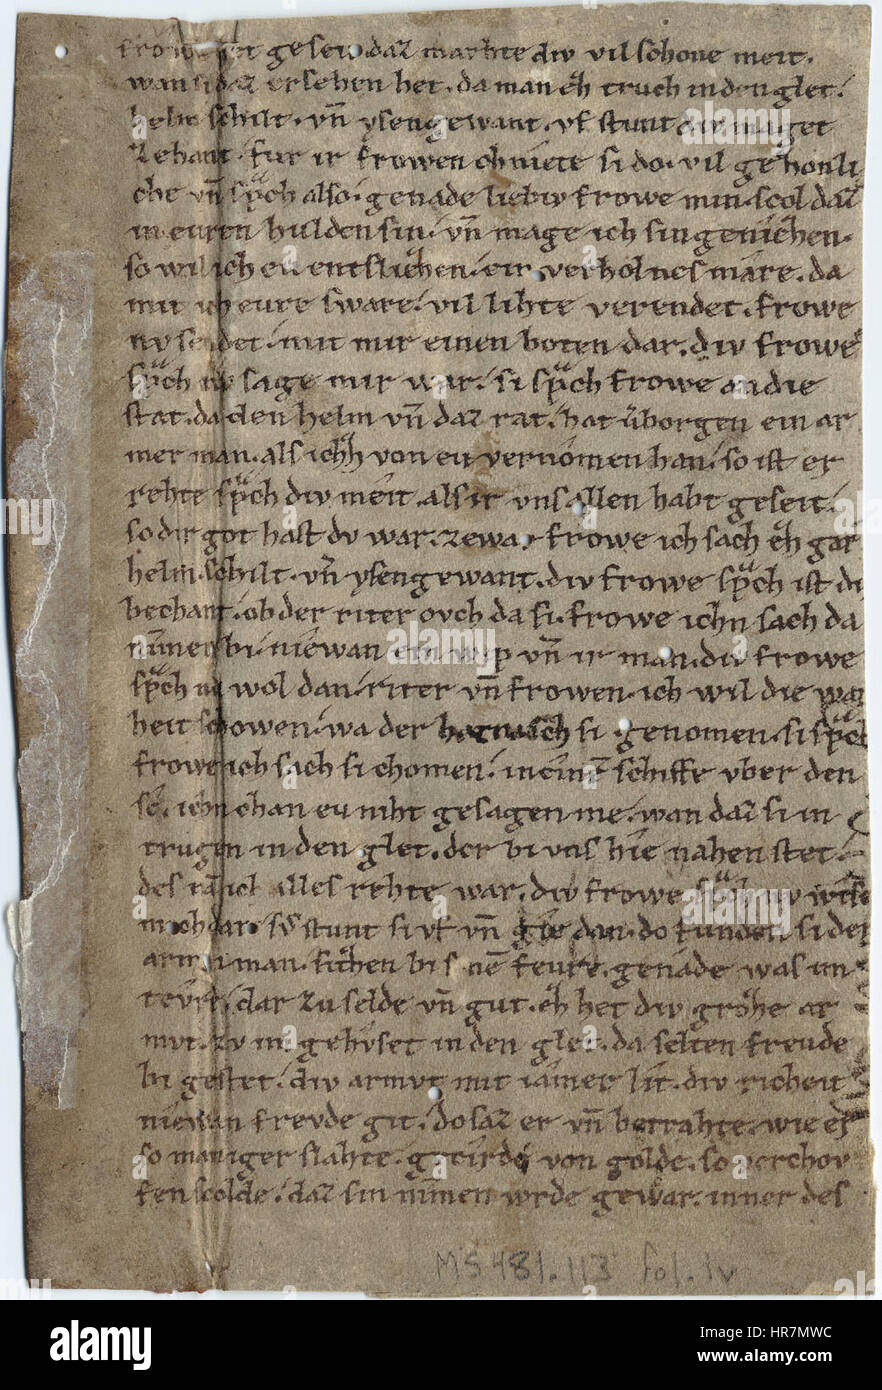 gesen. daz machte div vil schone meit.
wan si daz ersehen het. da man ǒch truch in den glet.
helm schilt. vn̄ ysengewant. vf stunt div maget
zehant. fur ir frowen chniete si do. vil gehonli
che vn̄ spͣch also. genade liebiv frowe min. scol daz
in euren hulden sin. vn̄ mage ich sin geniezzen.
so wil ich eu entsliezzen. eir verholnes mære. da
mit ich eure sware. vil lihte verendet. frowe
nv sendet. mit mir einen boten dar. div frowe
spͣch nv sage mir war. si spͣch frowe an die
stat. da den helm vn̄ daz rat. hat v̄borgen ein ar
mer man. als ichz von eu vernomen han. so ist er
rehte spͣch div meit. als ir vns allen habt geseit.
so dir got hast dv war. zewar frowe ich sach ǒch gar
helm. schilt. vn̄ ysengewant. div frowe spͣch ist di
bechant. ob der riter ovch da si. frowe ichn sach da
nimen bi. niewan ein wip vn̄ ir man. div frowe
spͣch nv wol dan. riter vn̄ frowen. ich wil die war
heit schowen. wa der harnasch si genomen. si spͣch
frowe ich sach si chomen. in einē schiffe vber den
se. ichn chan eu niht gesagen me. wan daz si in
trugen in den glet. der bi vns hie nahen stet.
des ich alles rehte war. div frowe spͣch nv wise
mich dar. sus stunt si vf vn̄ gie dan. do funden si den
armen man. sitzen bi sinē feure. genade was im
teure. dar zu selde vn̄ gut. ǒch het div grozze ar
mvt. zv im gehvset in den glet. da selten freude
bi gestet. div armvt mit iamer lit. div richeit
niewan frevde git. do saz er vn̄ betrahte. wie er
so maniger slahte. gezierde von golde. so verchov
fen scolde. daz sin nimen wrde gewar. inner des
MS 481.113 fol. 1v
alamy
HR7MWC
www.alamy.com